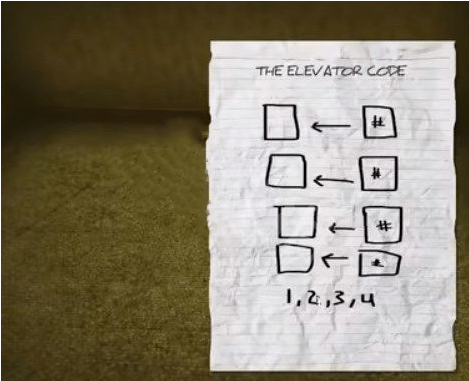 THE ELEVATOR CODE
#
#
#
1, 2, 3, 4